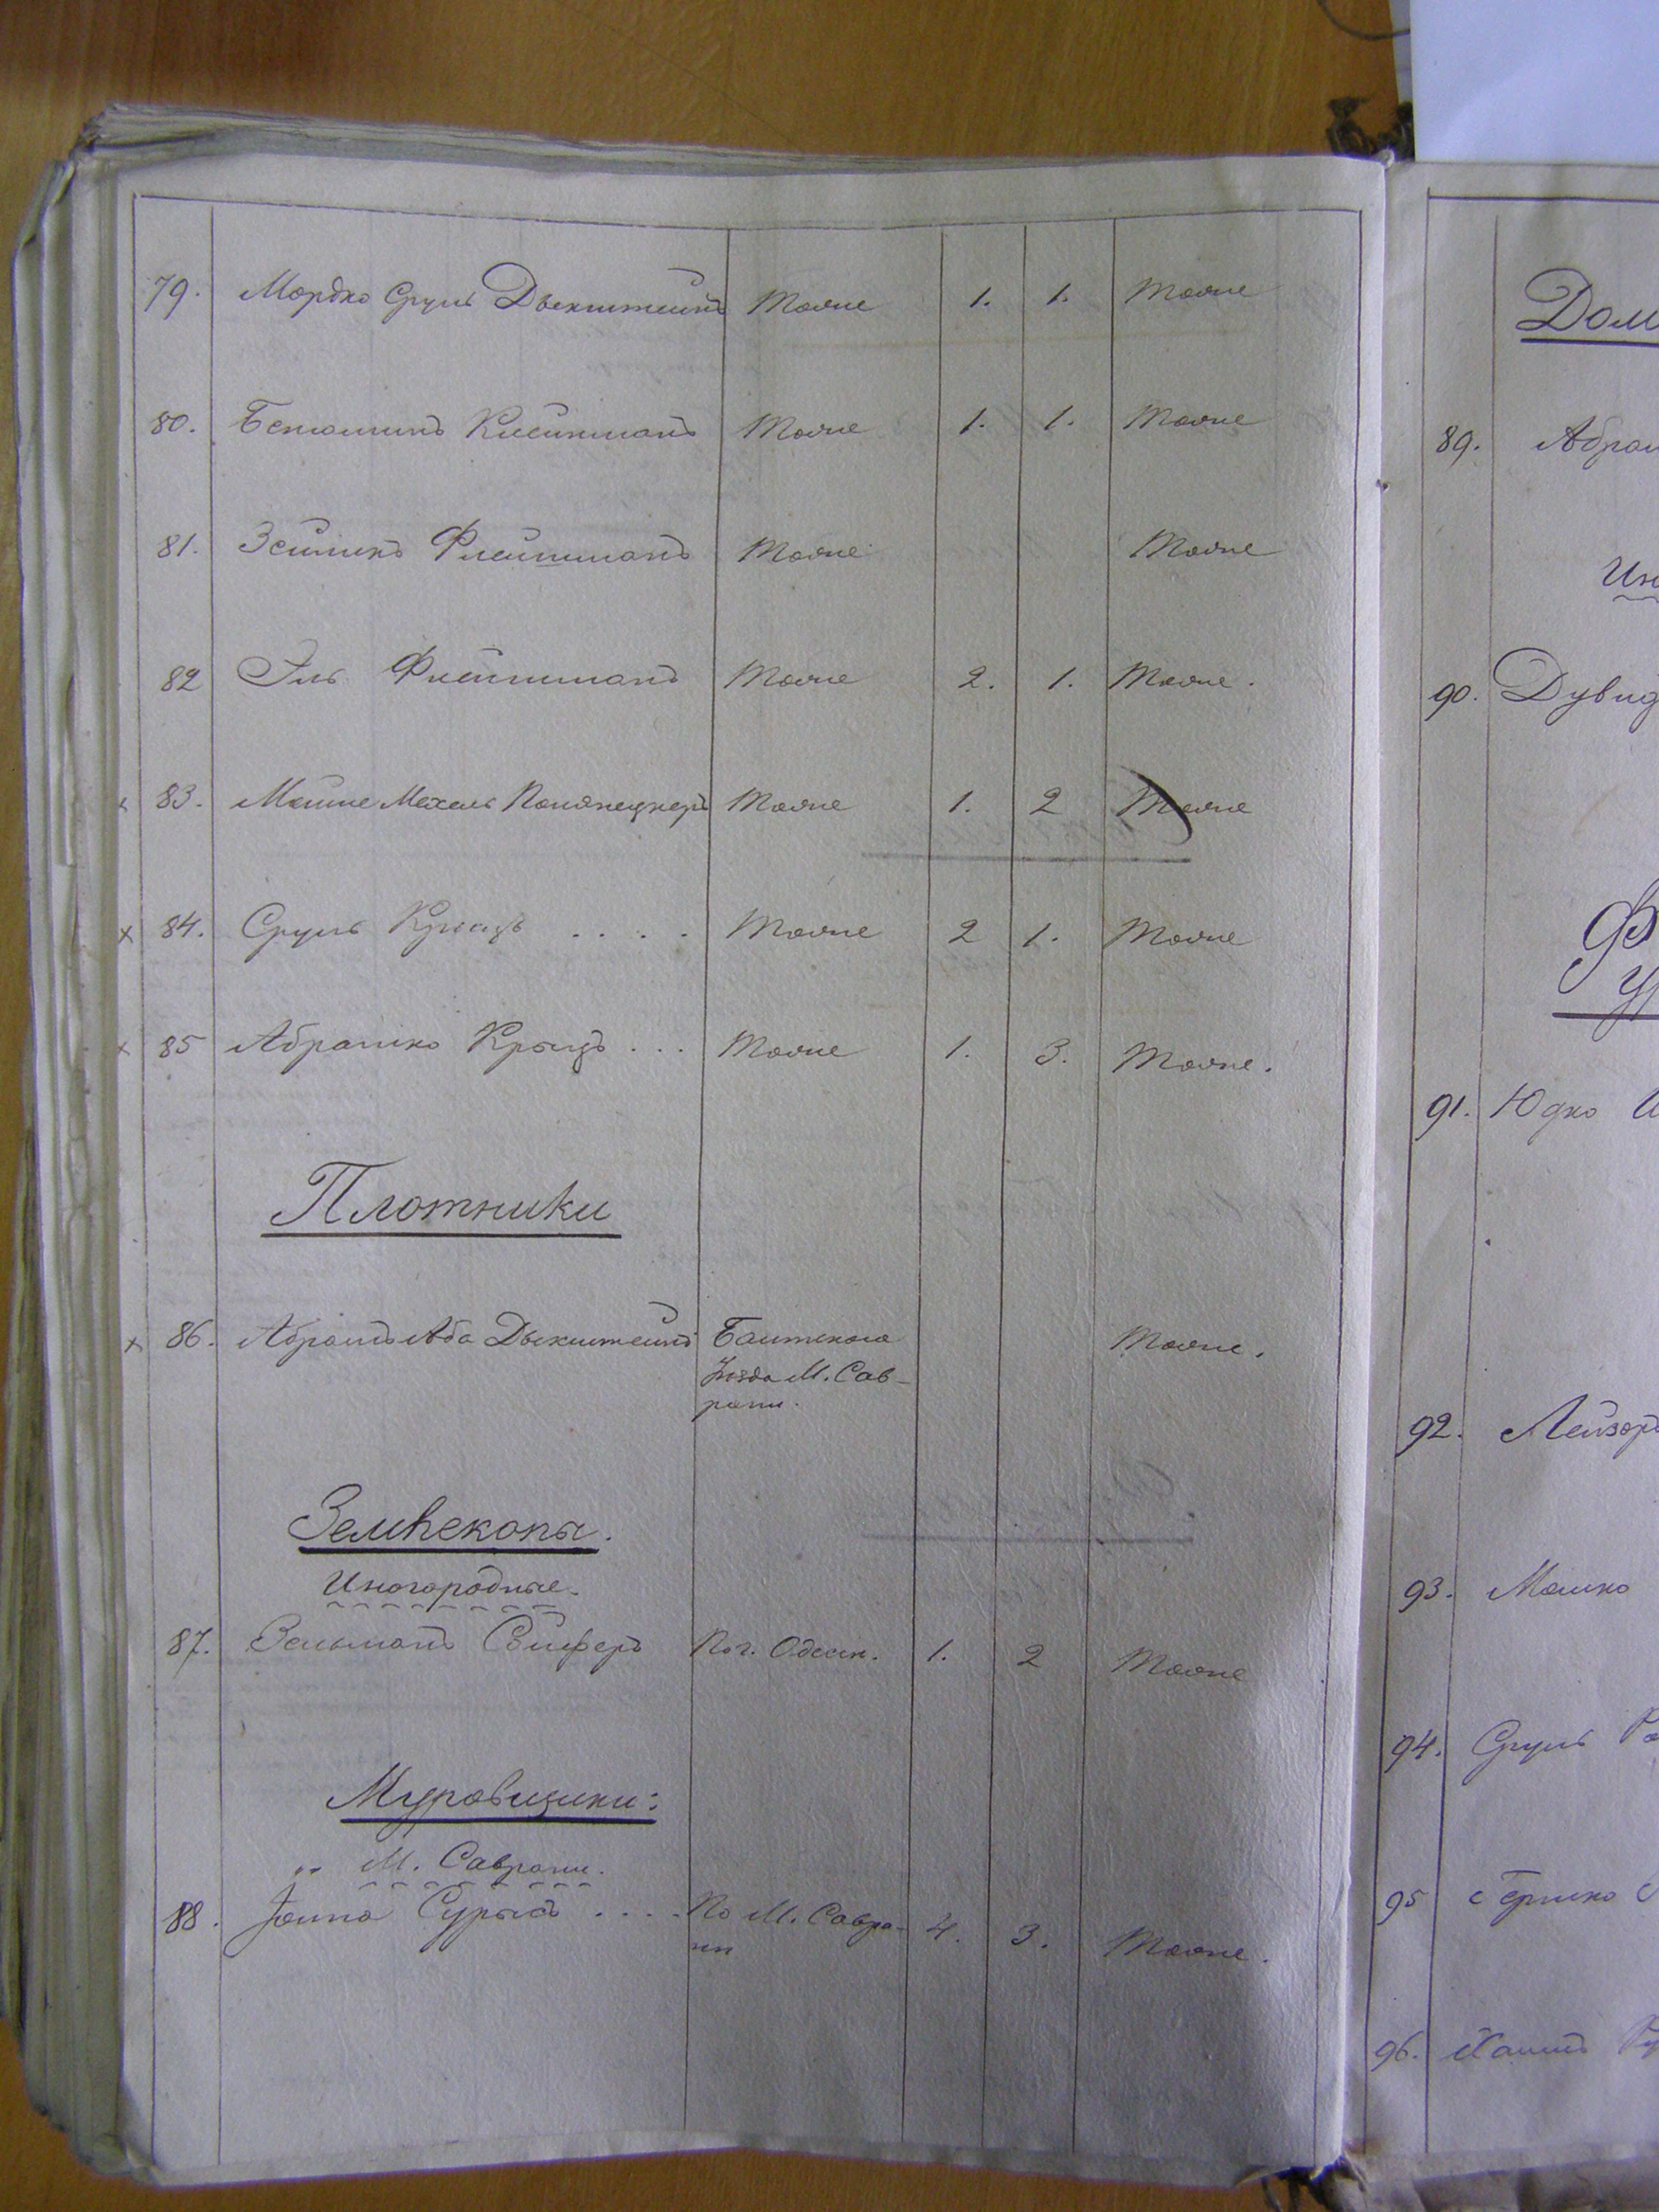 79. Мордко Сруль Двекштейнъ Тоже 1. 1. Тоже
80. Бенюминъ Клейнманъ Тоже 1. 1. Тоже
81. Зейликъ Флейшманъ Тоже Тоже
82 Эль Флейшманъ Тоже 2. 1. Тоже.
83. Мошне Мехель Тоже 1. 2 Тоже
х 84. Сруль Тоже 2 1. Тоже
х 85 Абрамко Крыцъ . . . Тоже 1. 3. Тоже.
Плотники
х 86. Абрамъ Аба Двекштейнъ Балтскаго Тоже.
Уѣзда М. Сав-
рани.
Землекопы.
Иногородные.
87. Зельманъ По г. Одесск. 1. 2 Тоже
Муровщики:
„ М. Саврани.
88. Іойна . . . . По М. Савра- 4. 3. Тоже.
ни
Дом
89. Абрам
Ин
90. Дувид
Ф
91. Юдко
92. Лейзоръ
93. Мошко
94. Сруль
95 Гершко
96. Хаимъ